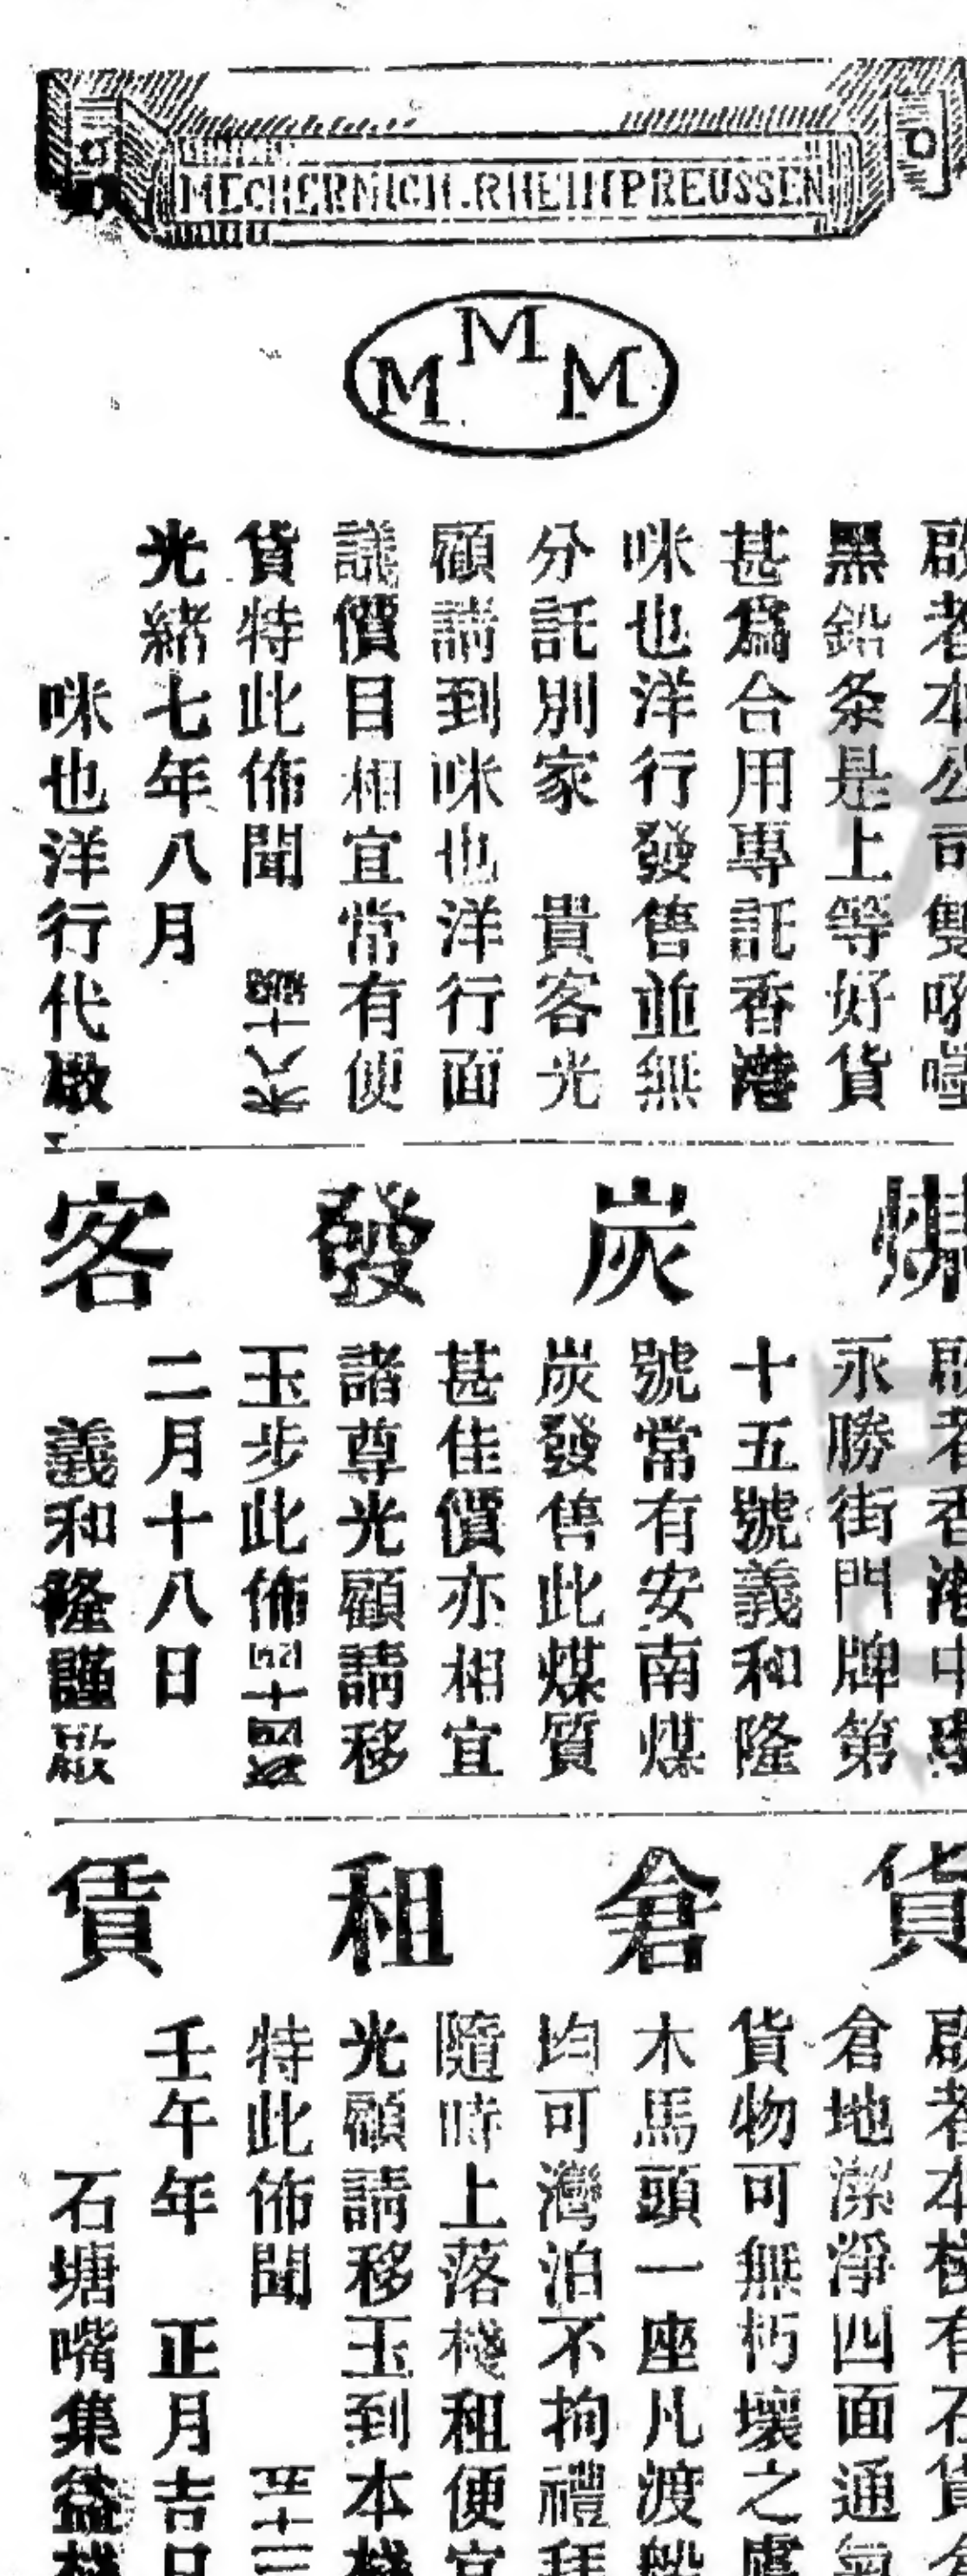 MECHERNICH.RHEINPREUSSEN
M M M
啟者本公司雙
黑鉛条是上等好貨
甚爲合用專託香港
咪也洋行發售並無
分託別家　貴客光
顧請到咪也洋行面
議價目相宜常有便
貨特此佈聞
光緒七年八月
咪也洋行代啟
煤炭發客
啟者香港中環
永勝街門牌第
十五號義和隆
號當有安南煤
炭發售此煤質
甚佳價亦相宜
諸尊光顧請移
玉步此佈
二月十八日
義和隆謹啟
貨倉租賃
啟者本棧有石貨倉
倉地潔淨四面通氣
貨物可無朽壞之虞
木馬頭一座凡渡船
均可灣泊不拘禮拜
隨時上落棧租便宜
光顧請移玉到本棧
特此佈聞
壬午年　正月吉日
石塘嘴集益棧